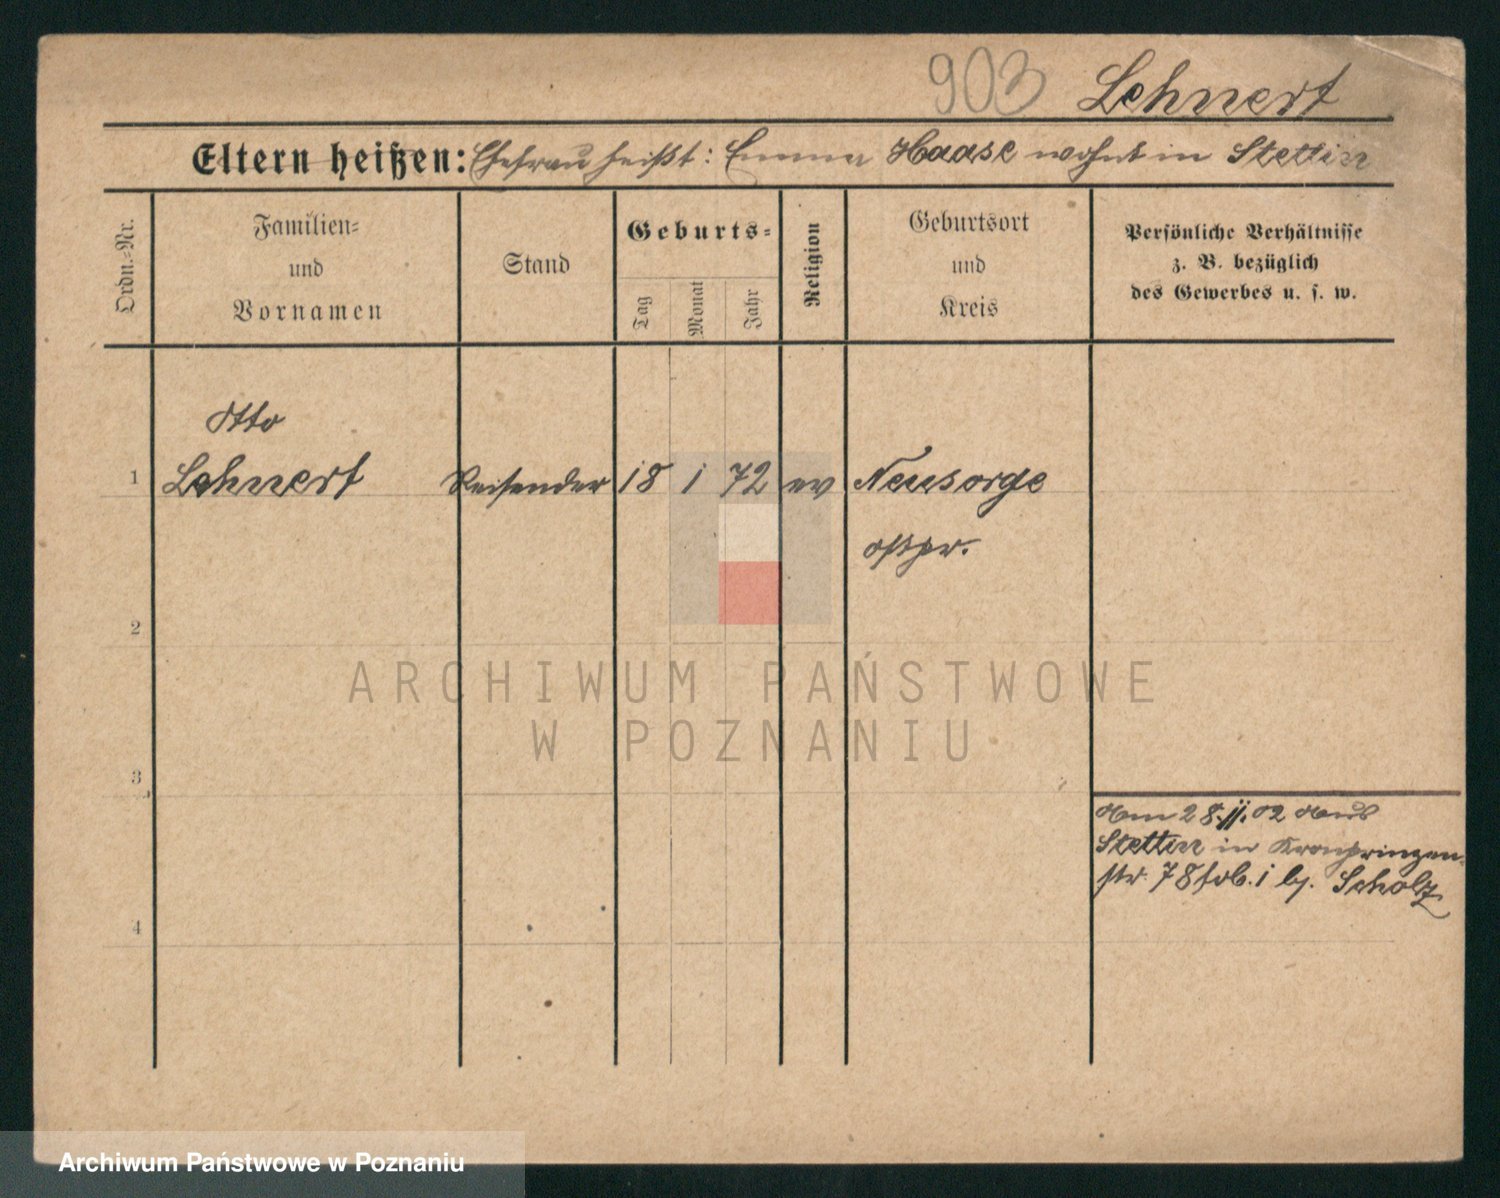 903 Lehnert
Eltern heißen: Ehefrau heißt: Emma Haase wohnt in Stettin
Ordn.-Nr.
Familien-
und
Vornamen
Stand
Geburts-
Tag
Monat
Jahr
Religion
Geburtsort
und
Kreis
Persönliche Verhältnisse
z. B. bezüglich
des Gewerbes u. s. w.
Otto
1 Lehnert Reisender 18 1 72 ev Neusorge
ostpr.
2
ARCHIWUM PAŃSTWOWE
W POZNANIU
3
28.11.02 aus
Stettin in Kronprinzen-
str. 78 b. Scholz
4
Archiwum Państwowe w Poznaniu